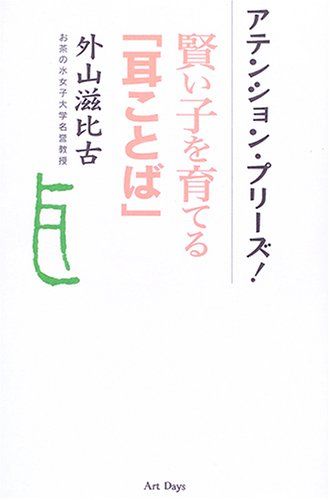 アテンション・プリーズ!
賢い子を育てる
「耳ことば」
外山滋比古
お茶の水女子大学名誉教授
Art Days